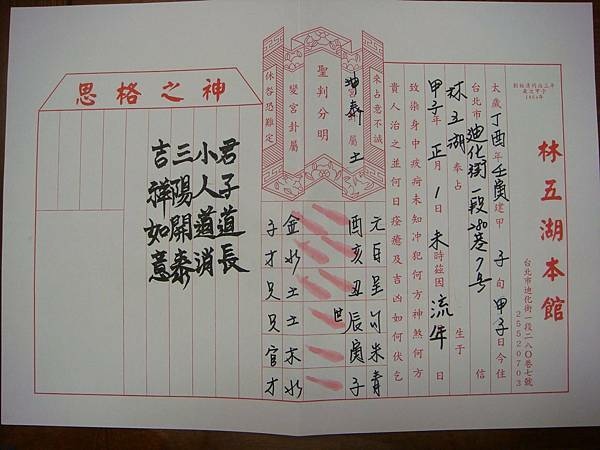 林五湖本館
台北市迪化街一段二八〇巷七號
25520703
1864年
太歲丁酉年壬寅建甲子旬甲子日今住
台北市迪化街一段280巷7号 信
林五湖奉占 生于
甲子年正月1日未時茲因流年日
致染身中疾病未知冲犯何方神煞何方
貴人治之並何日痊癒及吉凶如何伏乞
來占意不誠
坤 泰 屬土
聖判分明
變宮卦屬
休咎恐難定
句朱青
酉亥丑辰寅子
世
金水土土木水
子才兄兄官才
神之格思
君子道長
小人道消
三陽開泰
吉祥如意